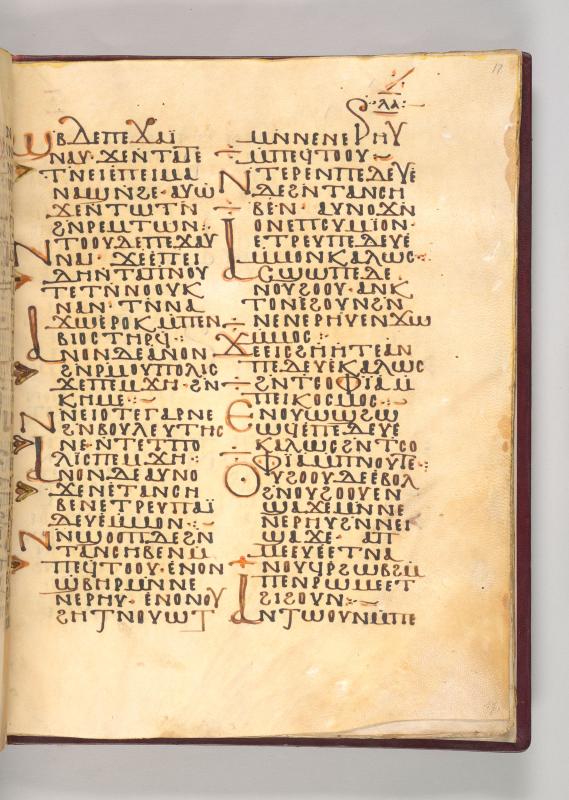 ⲗⲁ
ϣⲃ ⲇⲉⲡⲉϫⲁϊ
ⲛⲁⲩ· ϫⲉⲛⲧⲁⲧⲉ
ⲧⲛⲉⲓⲉⲡⲉⲓⲙⲁ
ⲛⲁϣⲛϩⲉ· ⲁⲩⲱ
ϫⲉⲛⲧⲱⲧⲛ
ϩⲛⲣⲙⲧⲱⲛ:
ⲛⲧⲟⲟⲩⲇⲉⲡⲉϫⲁⲩ
ⲛⲁⲓ· ϫⲉⲉⲡⲉⲓ
ⲇⲏⲛⲧⲁⲡⲛⲟⲩ
ⲧⲉⲧⲛⲛⲟⲟⲩⲕ
ⲛⲁⲛ· ⲧⲛⲛⲁ
ϫⲱⲉⲣⲟⲕⲙⲡⲉⲛ
ⲃⲓⲟⲥⲧⲏⲣϥ:
ⲁⲛⲟⲛⲇⲉⲁⲛⲟⲛ
ϩⲛⲣⲙⲟⲩⲡⲟⲗⲓⲥ
ϫⲉⲡⲉⲙϫⲏ· ϩⲛ
ⲕⲏⲙⲉ:
ⲛⲉⲛⲉⲓⲟⲧⲉⲅⲁⲣⲛⲉ
ϩⲛⲃⲟⲩⲗⲉⲩⲧⲏⲥ
ⲛⲉ· ⲛⲧⲉⲧⲡⲟ
ⲗⲓⲥⲡⲉⲙϫⲏ:
ⲁⲛⲟⲛⲇⲉⲁⲩⲛⲟ
ϫⲉⲛⲉⲧⲁⲛⲥⲏ
ⲃⲉⲛⲉⲧⲣⲉⲩⲡⲁⲓ̈
ⲇⲉⲩⲉⲙⲙⲟⲛ:
ⲛϣⲟⲣⲡⲇⲉϩⲛ
ⲧⲁⲛⲥⲏⲃⲉⲛⲙ
ⲡⲉϥⲧⲟⲟⲩ· ⲉⲛⲟⲛ
ϣⲃⲏⲣⲙⲛⲛⲉ
ⲛⲉⲣⲏⲩ· ⲉⲛⲟⲛⲟⲩ
ϩⲏⲧⲛⲟⲩⲱⲧ
ⲙⲛⲛⲉⲛⲉⲣⲏⲩ
ⲙⲡⲉϥⲧⲟⲟⲩ·
ⲛⲧⲉⲣⲉⲛⲡⲉⲇⲉⲩⲉ
ⲇⲉϩⲛⲧⲁⲛⲥⲏ
ⲃⲉ·ⲛ· ⲁⲩⲛⲟϫⲛ
ⲟⲛⲉⲡⲥⲩⲙⲓⲟⲛ·
ⲉⲧⲣⲉⲩⲡⲉⲇⲉⲩⲉ
ⲙⲙⲟⲛⲕⲁⲗⲱⲥ:
ϩⲱⲱⲡⲉⲇⲉ
ⲛⲟⲩϩⲟⲟⲩ· ⲁⲛⲕ
ⲧⲟⲛⲉϩⲟⲩⲛϩⲛ
ⲛⲉⲛⲉⲣⲏⲩⲉⲛϫⲱ
ⲙⲙⲟⲥ:
ϫⲉⲉⲓⲥϩⲏⲏⲧⲉⲁⲛ
ⲡⲉⲇⲉⲩⲉⲕⲁⲗⲱⲥ
ϩⲛⲧⲥⲟⲫⲓⲁⲙ
ⲡⲉⲓⲕⲟⲥⲙⲟⲥ:
ⲉⲛⲟⲩⲱϣϩⲱ
ⲱϥⲉⲡⲉⲇⲉⲩⲉ
ⲕⲁⲗⲱⲥϩⲛⲧⲥⲟ
ⲫⲓⲁⲙⲡⲛⲟⲩⲧⲉ:
ⲟⲩϩⲟⲟⲩⲇⲉⲉⲃⲟⲗ
ϩⲛⲟⲩϩⲟⲟⲩⲉⲛ
ϣⲁϫⲉⲙⲛⲛⲉ
ⲛⲉⲣⲏⲩϩⲛⲛⲉⲓ
ϣⲁϫⲉ· ⲁⲡ
ⲙⲉⲉⲩⲉⲉⲧⲛⲁ
ⲛⲟⲩϥⲣϩⲱⲃϩⲙ
ⲡⲉⲛⲣⲱⲙⲉⲉⲧ
ϩⲓϩⲟⲩⲛ:
ⲁⲛⲧⲱⲟⲩⲛⲙⲡⲉ